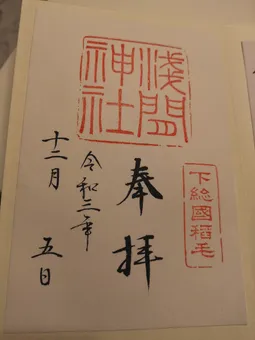 下総國稲毛
奉拝
浅間
神社
令和三年
十二月 五日